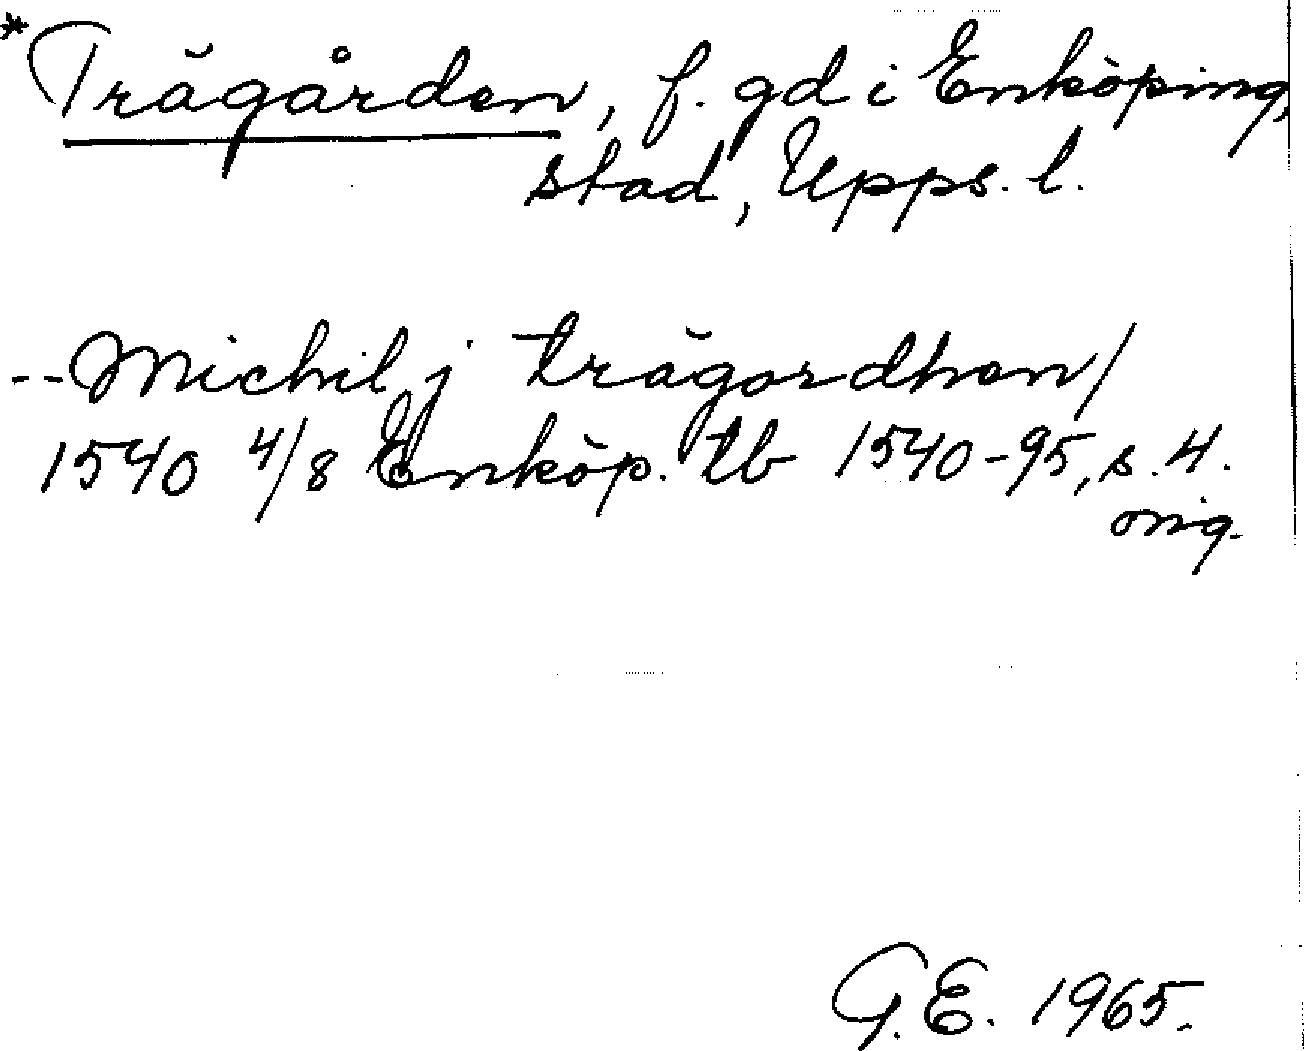 *Trägården, f. gd i Enköping,
stad, Upps. l.
--Michil j trägordhen/
1540 4/8 Enköp. tb 1540-95, s. 4.
orig.
G.E. 1965.